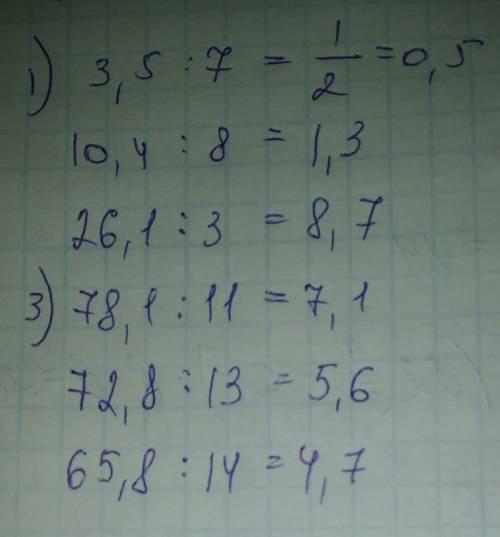 1) 3,5 : 7 = 1/2 = 0,5
10,4 : 8 = 1,3
26,1 : 3 = 8,7
3) 78,1 : 11 = 7,1
72,8 : 13 = 5,6
65,8 : 14 = 4,7